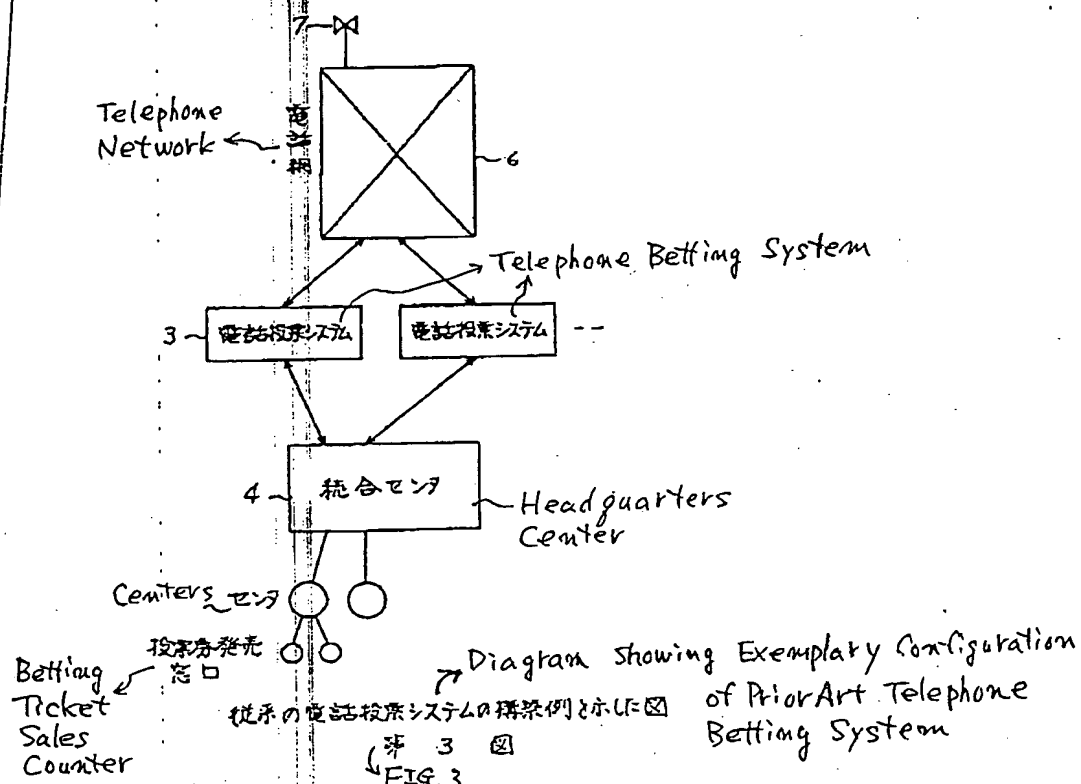 7
Telephone
Network
電話網
6
Telephone Betting System
3
電話投票システム
電話投票システム
--
4
統合センタ
Headquarters
Center
Centers
センタ
投票券発売
窓口
Betting
Ticket
Sales
Counter
Diagram Showing Exemplary Configuration
of Prior Art Telephone
Betting System
従来の電話投票システムの構築例を示した図
第 3 図
FIG. 3